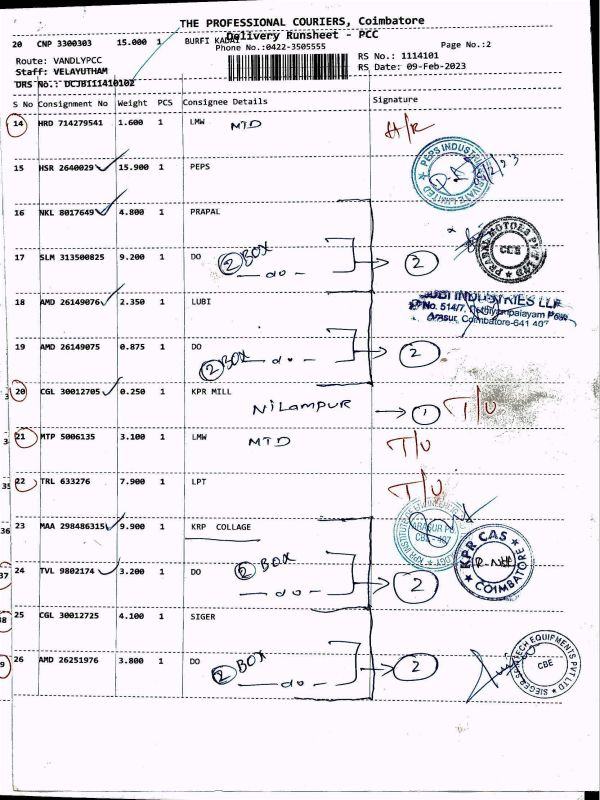 THE PROFESSIONAL COURIERS, Coimbatore
Delivery Runsheet - PCC
20 CNP 3300303 15.000 1 BURFI KADAI
Phone No.:0422-3505555 Page No.:2
Route: VANDLYPCC RS No.: 1114101
Staff: VELAYUTHAM RS Date: 09-Feb-2023
DRS No.: DCJB111410102
S No Consignment No Weight PCS Consignee Details Signature
14 HRD 714279541 1.600 1 LMW MTD H/R
15 HSR 2640029 15.900 1 PEPS
PEPS INDUSTRIES PRIVATE LIMITED
16 NKL 8017649 4.800 1 PRAPAL
17 SLM 313500825 9.200 1 DO
2 BOX
do 2
CBE
18 AMD 26149076 2.350 1 LUBI
LUBI INDUSTRIES LLP
No. 514/7,
Arasur, Coimbatore-641 407
19 AMD 26149075 0.875 1 DO
2 BOX do 2
20 CGL 30012705 0.250 1 KPR MILL
NILAMPUR 1 T/U
21 MTP 5006135 3.100 1 LMW MTD T/U
22 TRL 633276 7.900 1 LPT T/U
23 MAA 298486315 9.900 1 KRP COLLAGE
KPR CAS COIMBATORE
24 TVL 9802174 3.200 1 DO
2 BOX
do 2
25 CGL 30012725 4.100 1 SIGER
26 AMD 26251976 3.800 1 DO
2 BOX
do 2
CBE